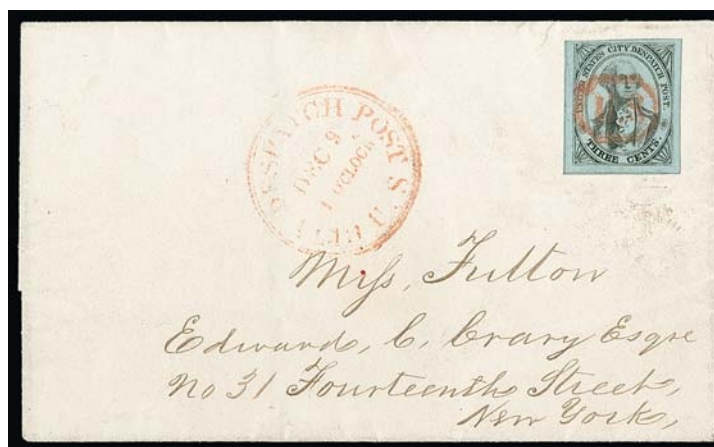 UNITED STATES CITY DESPATCH POST.
THREE CENTS.
U.S CITY DESPATCH POST
DEC 9
O'CLOCK
Miss, Fulton
Edward, C. Crary Esqre
No 31 Fourteenth Street,
New York,